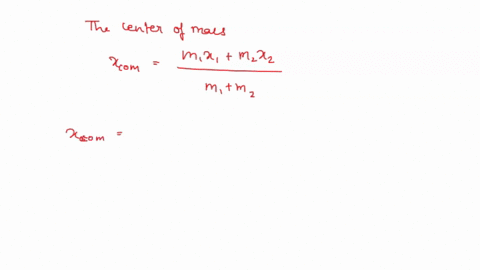 The center of mass
x_com = (m₁x₁ + m₂x₂) / (m₁ + m₂)
x_com =